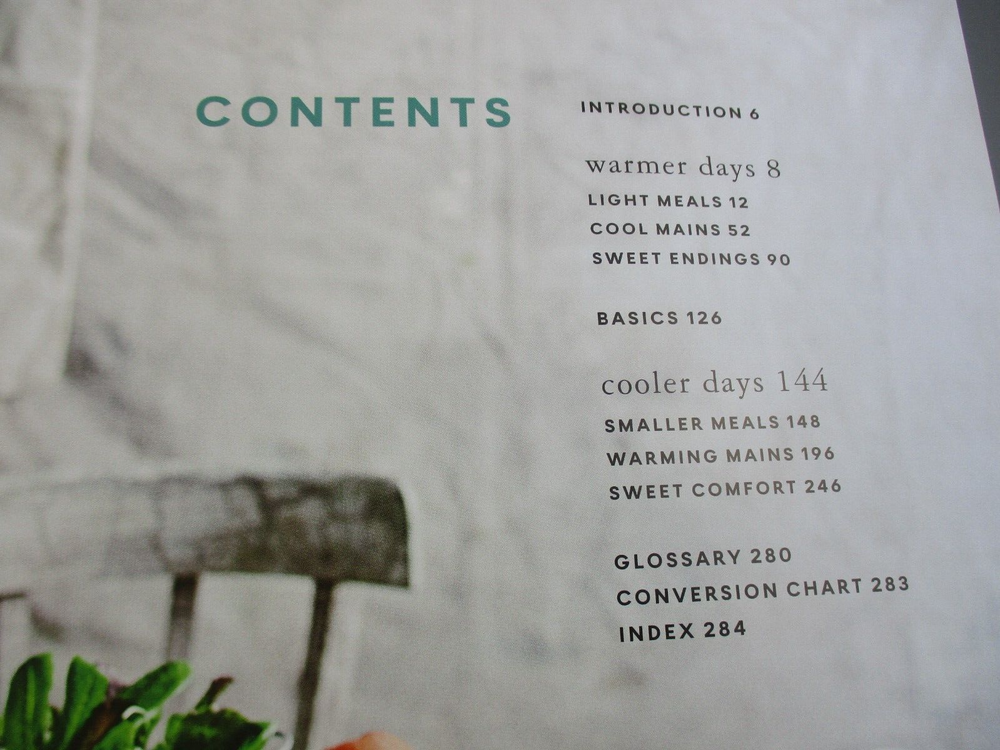 CONTENTS
INTRODUCTION 6
warmer days 8
LIGHT MEALS 12
COOL MAINS 52
SWEET ENDINGS 90
BASICS 126
cooler days 144
SMALLER MEALS 148
WARMING MAINS 196
SWEET COMFORT 246
GLOSSARY 280
CONVERSION CHART 283
INDEX 284